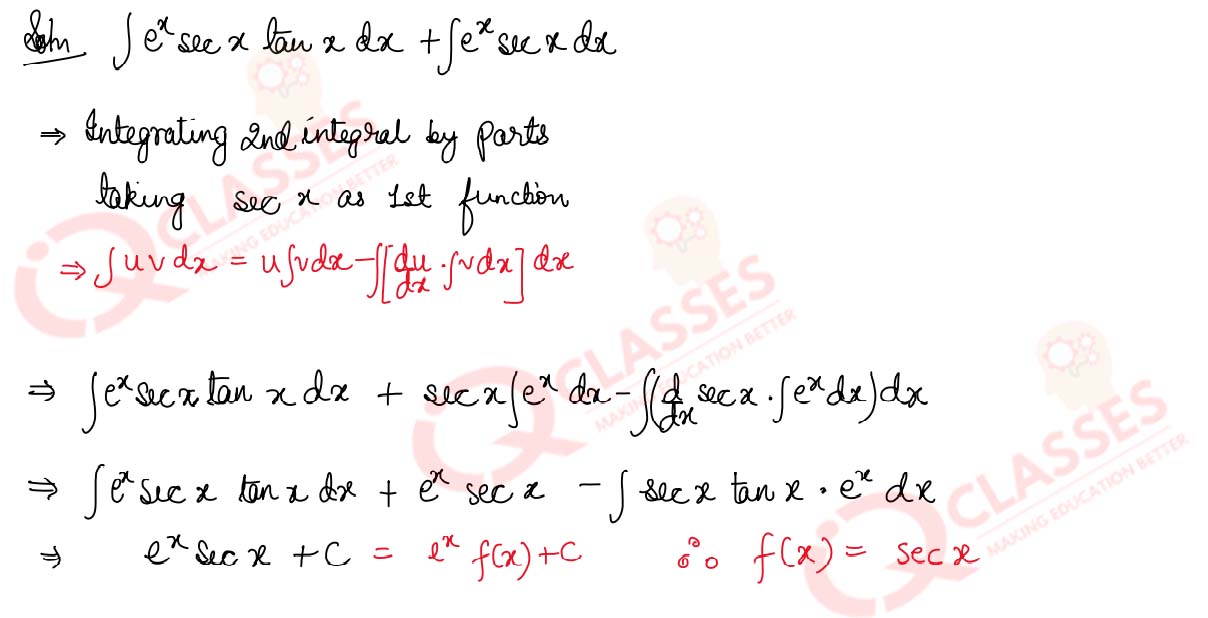 Soln ∫ e^x sec x tan x dx + ∫ e^x sec x dx
⇒ Integrating 2nd integral by parts
taking sec x as 1st function
⇒ ∫ u v dx = u ∫ v dx - ∫ [du/dx . ∫ v dx] dx
⇒ ∫ e^x sec x tan x dx + sec x ∫ e^x dx - ∫ (d/dx sec x . ∫ e^x dx) dx
⇒ ∫ e^x sec x tan x dx + e^x sec x - ∫ sec x tan x . e^x dx
⇒ e^x sec x + C = e^x f(x) + C ∴ f(x) = sec x
CLASSES
MAKING EDUCATION BETTER
CLASSES
MAKING EDUCATION BETTER
CLASSES
MAKING EDUCATION BETTER